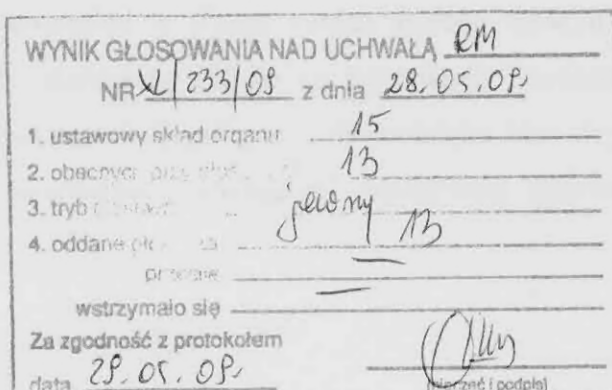 WYNIK GŁOSOWANIA NAD UCHWAŁĄ RM
NR XL/233/09 z dnia 28.05.09.
1. ustawowy skład organu 15
2. obecnych 13
3. tryb jawny
4. oddane 13
wstrzymało się —
Za zgodność z protokołem
data 29.05.09.
(pieczęć i podpis)